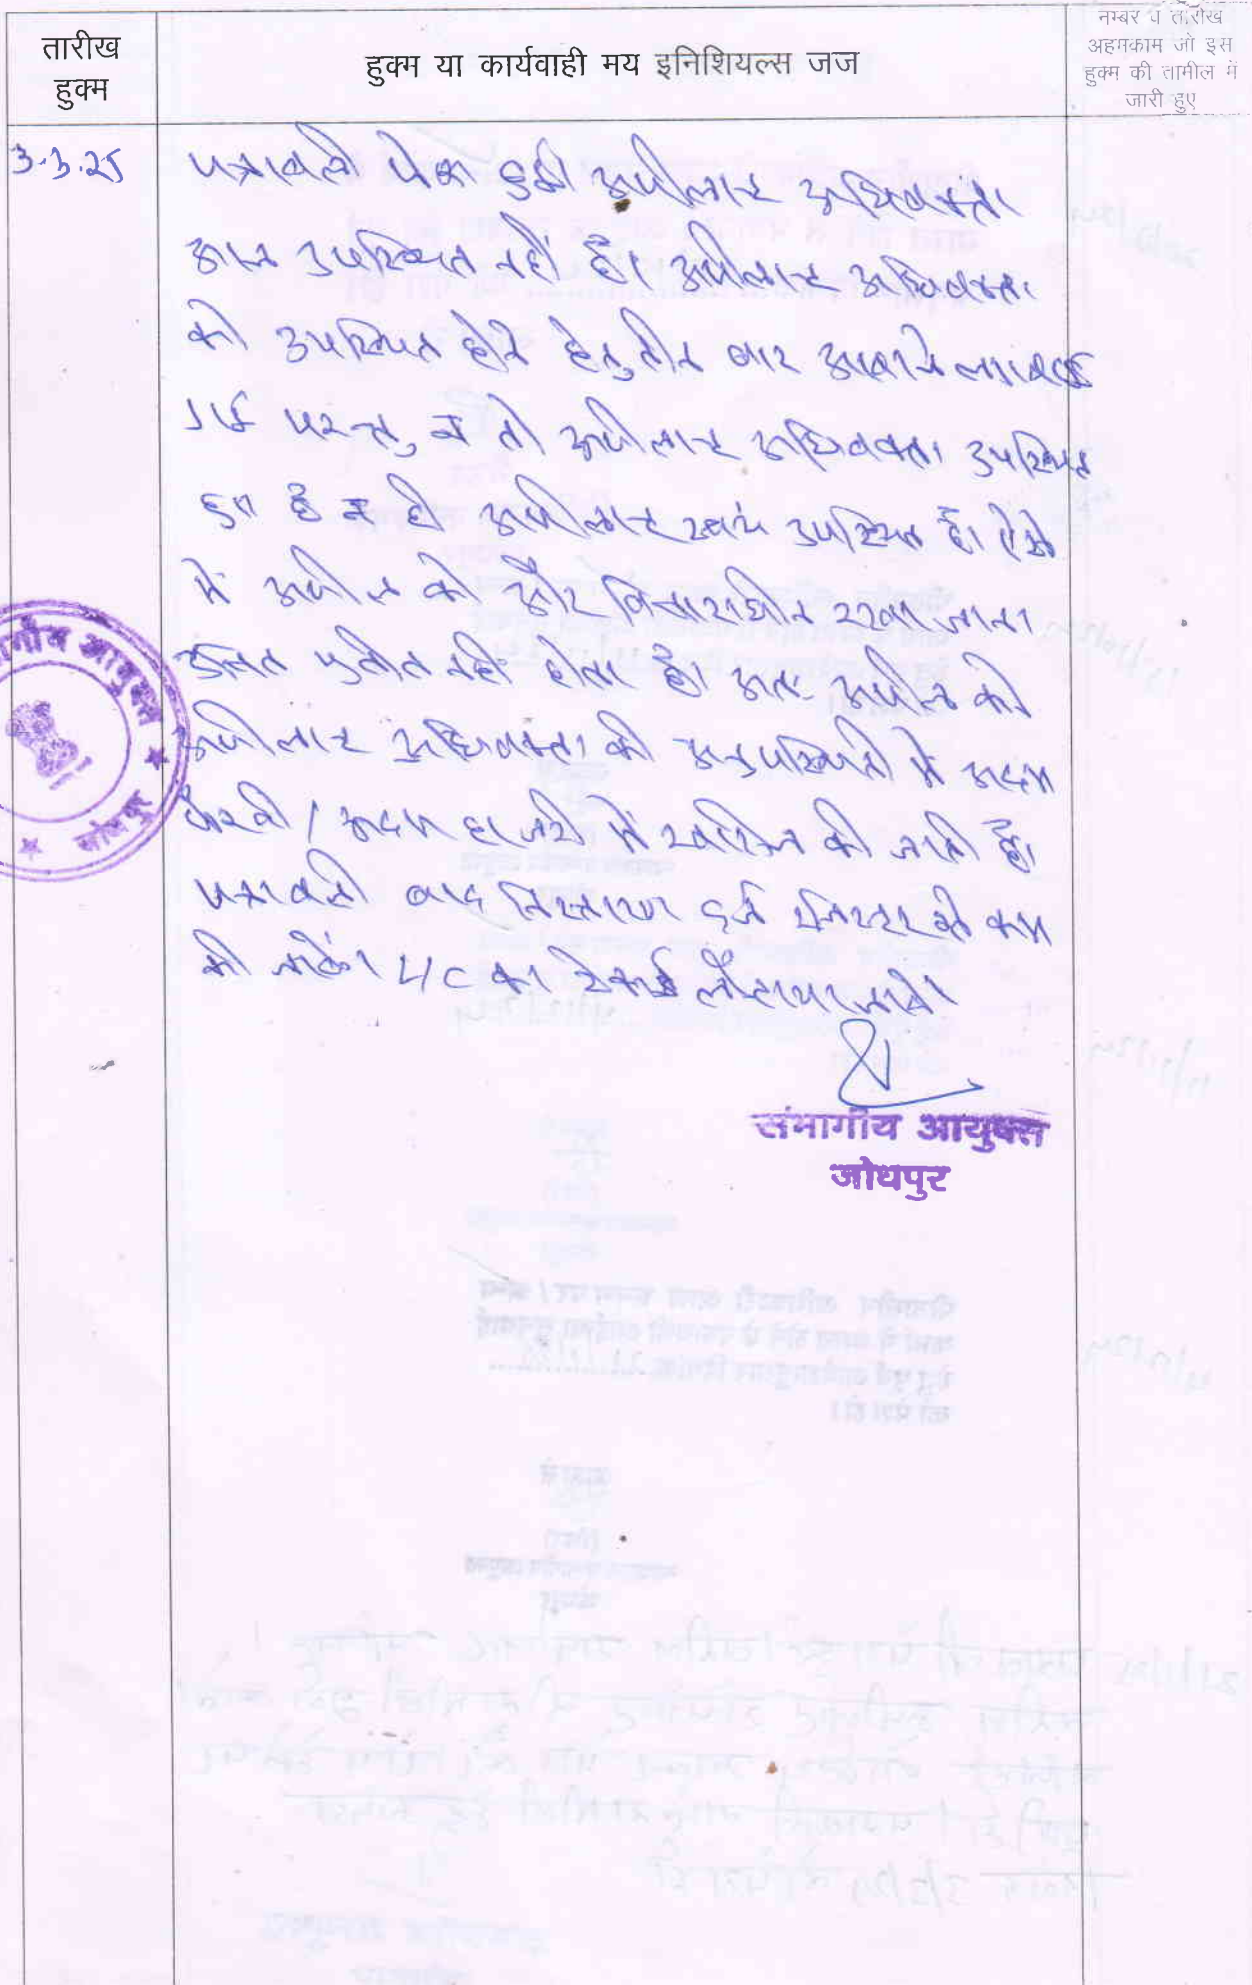 तारीख
हुक्म
हुक्म या कार्यवाही मय इनिशियल्स जज
नम्बर व तारीख
अहमकाम जो इस
हुक्म की तामील में
जारी हुए
3.3.25
पत्रावली पेश हुई। अपीलान्ट अधिवक्ता
आज उपस्थित नहीं है। अपीलान्ट अधिवक्ता
को उपस्थित होने हेतु तीन बार आवाजें लगवाई
गई परन्तु न तो अपीलान्ट अधिवक्ता उपस्थित
हुए है न ही अपीलान्ट स्वयं उपस्थित है। ऐसे
में अपील को और विचाराधीन रखा जाना
उचित प्रतीत नहीं होता है। अतः अपील को
अपीलान्ट अधिवक्ता की अनुपस्थिती में अदम
पैरवी / अदम हाजरी में खारिज की जाती है।
पत्रावली बाद निस्तारण दर्ज रजिस्टर से कम
की जावें। L/C का रेकार्ड लौटाया जावे।
संभागीय आयुक्त
जोधपुर
संभागीय आयुक्त
जोधपुर